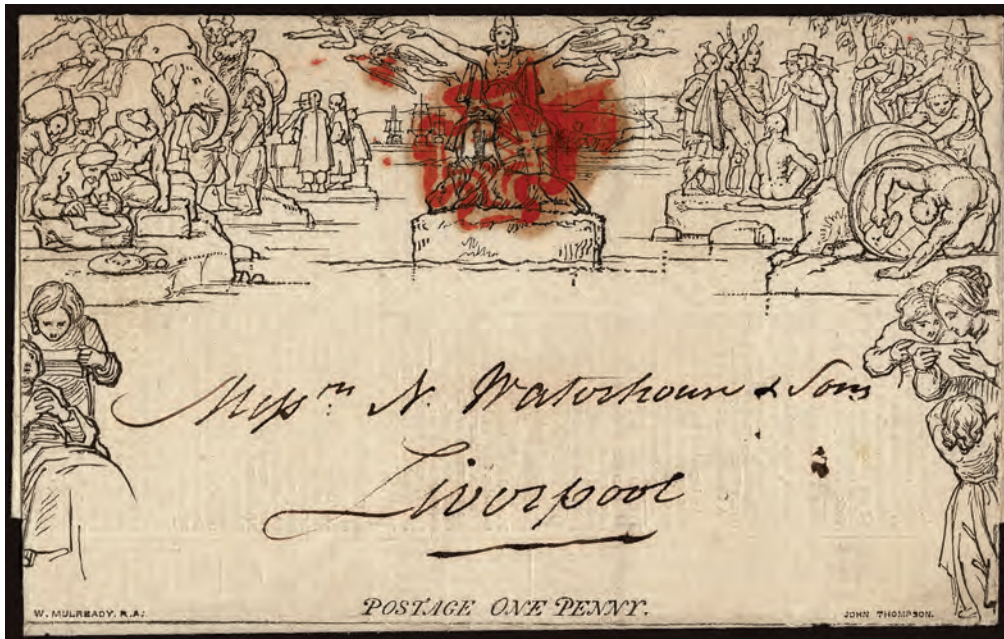 Messrs N. Waterhouse & Sons
Liverpool
W. MULREADY. R.A.
POSTAGE ONE PENNY.
JOHN THOMPSON.